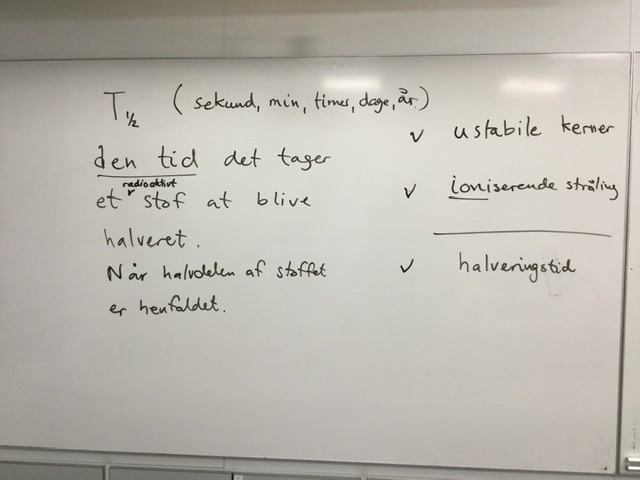 T½ (sekund, min, timer, dage, år)
den tid det tager
et radioaktivt stof at blive
halveret.
Når halvdelen af stoffet
er henfaldet.
✓ ustabile kerner
✓ ioniserende stråling
✓ halveringstid